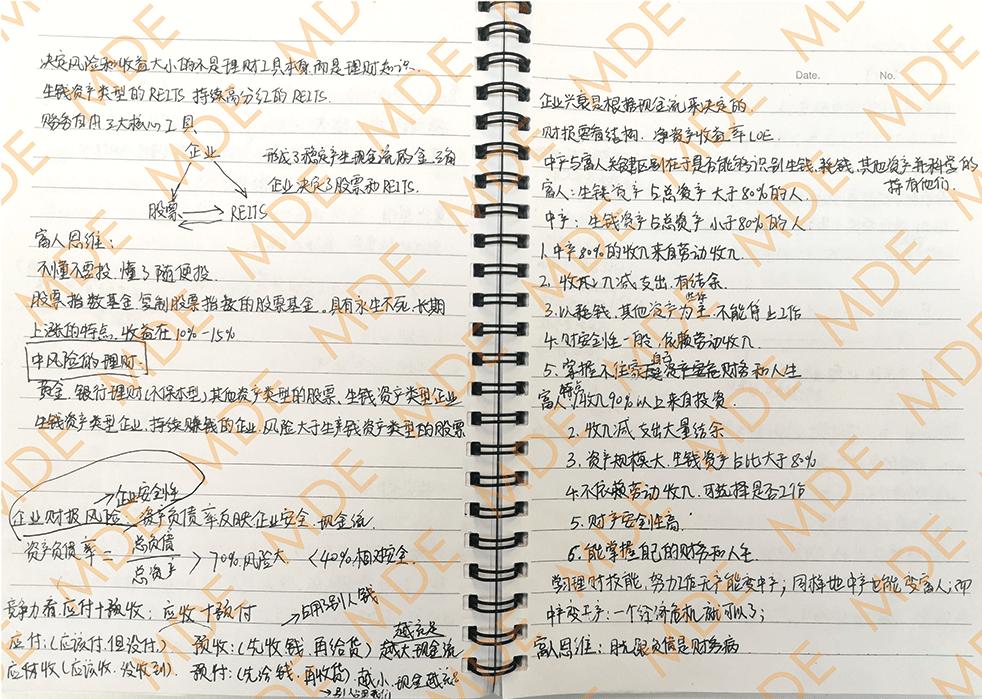 决定风险和收益大小的不是理财工具本身而是理财知识.
生钱资产类型的REITS 持续高分红的REITS.
财务自由三大核心工具
企业
形成了稳定产生现金流的金三角
企业决定了股票和REITS.
股票 REITS
富人思维:
不懂不要投.懂了随便投.
股票指数基金.复制股票指数的股票基金.具有永生不死,长期
上涨的特点.收益在10%-15%
中风险的理财.
黄金 银行理财(不保本型)其他资产类型的股票.生钱资产类型企业
生钱资产类型企业.持续赚钱的企业.风险大于生钱资产类型的股票
→企业安全性
企业财报风险 资产负债率反映企业安全.现金流
资产负债率= 总负债/总资产 >70%风险大 <40%相对安全.
竞争力看应付+预收; 应收+预付 →占用别人钱
越充足
应付:(应该付.但没付.) 预收:(先收钱.再给货) 越大.现金流
应收(应该收.没收到) 预付:(先给钱.再收货).越小.现金越充足
→别人占用我们
Date. No.
企业兴衰是根据现金流来决定的.
财报要看结构. 净资产收益率LOE.
中产与富人关键区别在于是否能够识别生钱、耗钱、其他资产并科学的
持有他们.
富人:生钱资产占总资产大于80%的人.
中产: 生钱资产占总资产小于80%的人.
1.中产80%的收入来自劳动收入
2. 收入减支出.有结余.
3.以耗钱.其他资产为主.不能停止工作
4.财安全性一般,依赖劳动收入
5. 掌握不住家财务和人生
富人特点:收入90%以上来自投资.
2. 收入减支出大量结余
3. 资产规模大.生钱资产占比大于80%
4.不依赖劳动收入.可选择是否工作
5.财产安全性高.
6.能掌握自己的财务和人生
学理财技能,努力工作无产能变中产,同样地中产也能变富人;而
中产变无产:一个经济危机就可以了;
富人思维: 负债是财务病
MDE